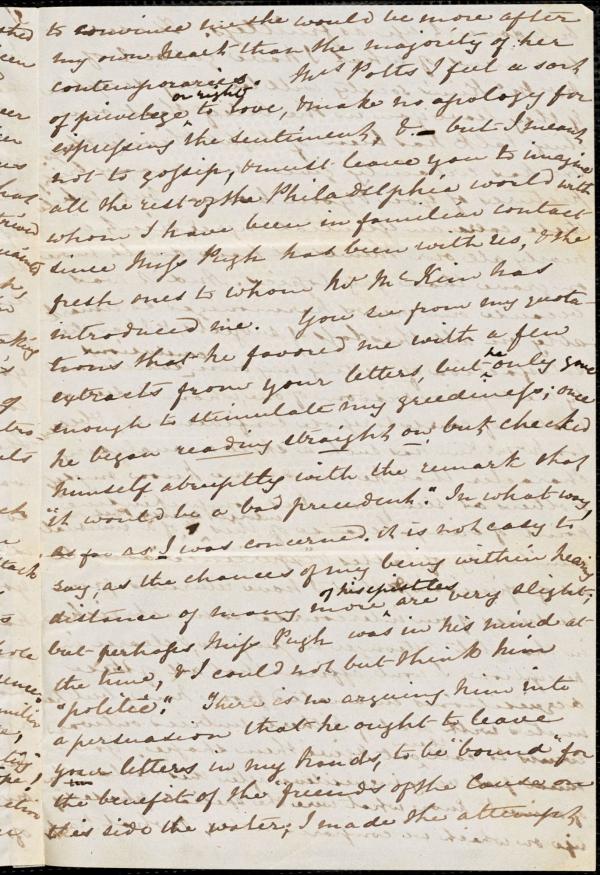 to convince me she would be more after
my own heart than the majority of her
contemporaries. Mrs Potts I feel a sort
of privilege or right to love, & make no apology for
expressing the sentiment, &- but I meant
not to gossip, & must leave you to imagine
all the rest of the Philadelphia world with
whom I have been in familiar contact
since Miss Pugh has been with us, & the
fresh ones to whom Mr McKim has
introduced me. You see from my quota-
tions that he favored me with a few
extracts from your letters, but he only gave
enough to stimulate my greediness; once
he began reading straight on, but checked
himself abruptly with the remark that
"it would be a bad precedent." In what way,
as far as I was concerned, it is not easy to
say, as the chances of my being within hearing
distance of many more of his epistles are very slight;
but perhaps Miss Pugh was in his mind at
the time, & I could not but think him
"politic." There is no arguing him into
a persuasion that he ought to leave
your letters in my hands, to be "bound" for
the benefit of the friends of the Cause on
this side the water; I made the attempt